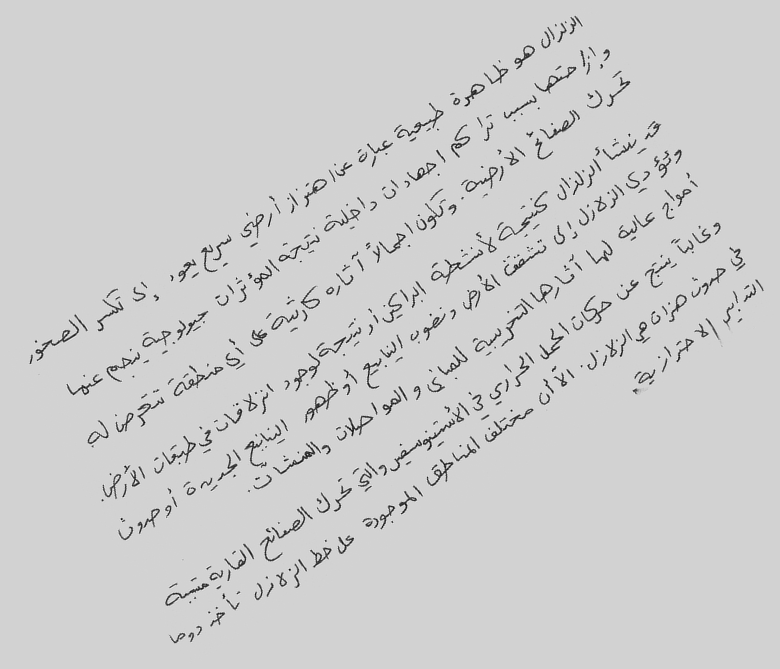 الزلزال هو ظاهرة طبيعية عبارة عن اهتزاز أرضي سريع يعود إلى تكسر الصخور
وإزاحتها بسبب تراكم اجهادات داخلية نتيجة المؤثرات جيولوجية ينجم عنها
تحرك الصفائح الأرضية. وتكون اجمالاً آثاره كارثية على أي منطقة تتعرض له
قد ينشأ الزلزال كنتيجة لأنشطة البراكين أو نتيجة لوجود انزلاقات في طبقات الأرض.
وتؤدي الزلازل إلى تشقق الأرض ونضوب الينابيع أو ظهور الينابيع الجديدة أو حدوث
أمواج عالية لها آثارها التخريبية للمباني و المواصلات والمنشآت.
وغالباً ينتج عن حركات الحمل الحراري في الأستينوسفير والتي تحرك الصفائح القارية متسببة
في حدوث هزات هي الزلازل. الاّ أن مختلف المناطق الموجودة على خط الزلازل تأخذ دوما
التدابير الاحترازية.